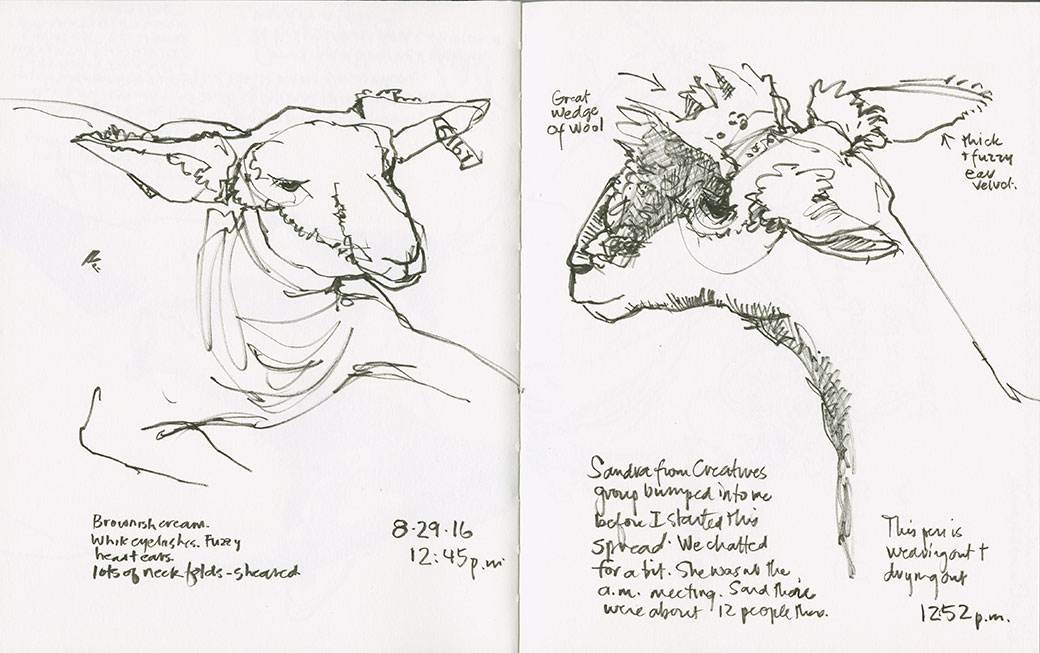 Brownish cream.
White eyelashes. Fuzzy
heart ears.
lots of neck folds - sheared
8.29.16
12:45 p.m.
Great
Wedge
of Wool
thick
+ fuzzy
ear
velvet.
Sandra from Creatures
group bumped into me
before I started this
spread. We chatted
for a bit. She was at the
a.m. meeting. Said there
were about 12 people there.
This pen is
wearing out +
drying out
12:52 p.m.